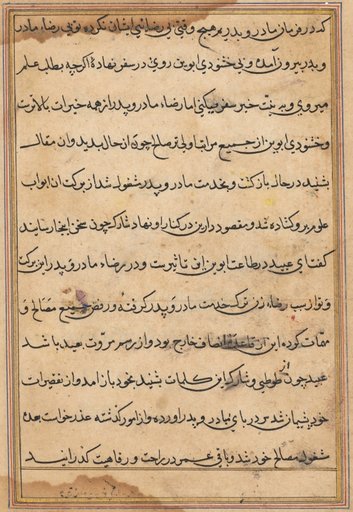 که در فرمان مادر و پدر بر هیچ وقتی بی رضائی ایشان نکرده توبی رضاء مادر
و پدر بیرون آمده و بی خشنودی ابوین روی در سفر نهادهٔ اگرچه بطلب علم
میروی و به نیت خیر سفر میکنی اما رضاء مادر و پدر از همه خیرات بالاترست
و خشنودی ابوین از جمیع مراتب اولیتر صالح چون از حال بدید و ان مقال
بشنید در حال بازگشت و بخدمت مادر و پدر مشغول شد از برکت ان ابواب
علوم برو گشاده شد و مقصود دارین در کنار او نهاد شارک چون سخن اینجا رسانید
گفت ای عبید در طاعت ابوین این تاثیرست و در رضاء مادر و پدر این برکت
و تو از سبب رضاء زن ترک خدمت مادر و پدر گرفته و رفض جمیع مصالح و
مهمات کرده این از قاعدهٔ انصاف خارج بود و از رسم مروت بعید باشد
عبید چون از طوطی و شارک این کلمات شنید بخود باز امد و از تقصیرات
خود پشیمان شد سر در پای مادر و پدر اورده و از امور گذشته عذر خواست بعده
مشغول مصالح خود شد و باقی عمر در راحت و رفاهیت گذرانید